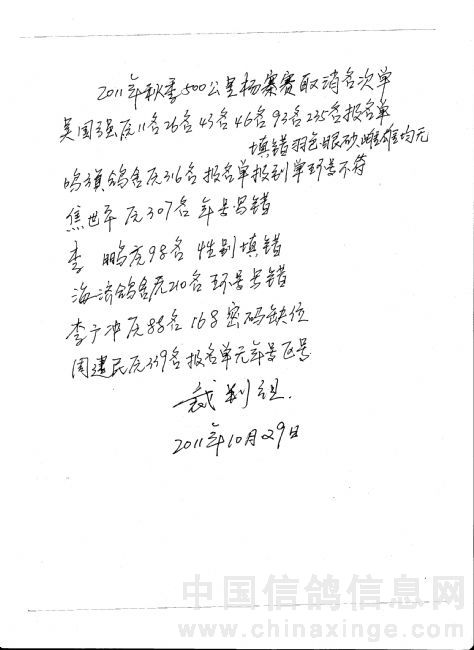 2011年秋季500公里杨寨赛取消名次单
吴国强应11名26名43名46名93名235名报名单
填错羽色眼砂雌雄均无
鸣旗鸽舍应316名报名单报到单环号不符
焦世平应307名年号写错
李 鹏应98名 性别填错
海济鸽舍应210名环号写错
李广冲应88名 168密码缺位
周建民应339名报名单无年号区号
裁判组.
2011年10月29日
中国信鸽信息网
www.chinaxinge.com